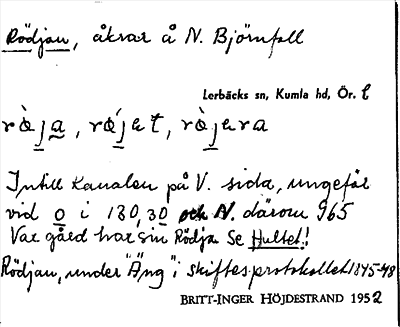 Rödjan, åkrar å N. Björnfall
Lerbäcks sn, Kumla hd, Ör. l
rö̀ja, röjet, rö̀jera
Intill Kanalen på V. sida, ungefär
vid o i 130,30 och N. därom 965
Var gård har sin Rödja. Se Hultet!
Rödjan, under "Äng" i skiftesprotokollet 1845-48
BRITT-INGER HÖJDESTRAND 1952